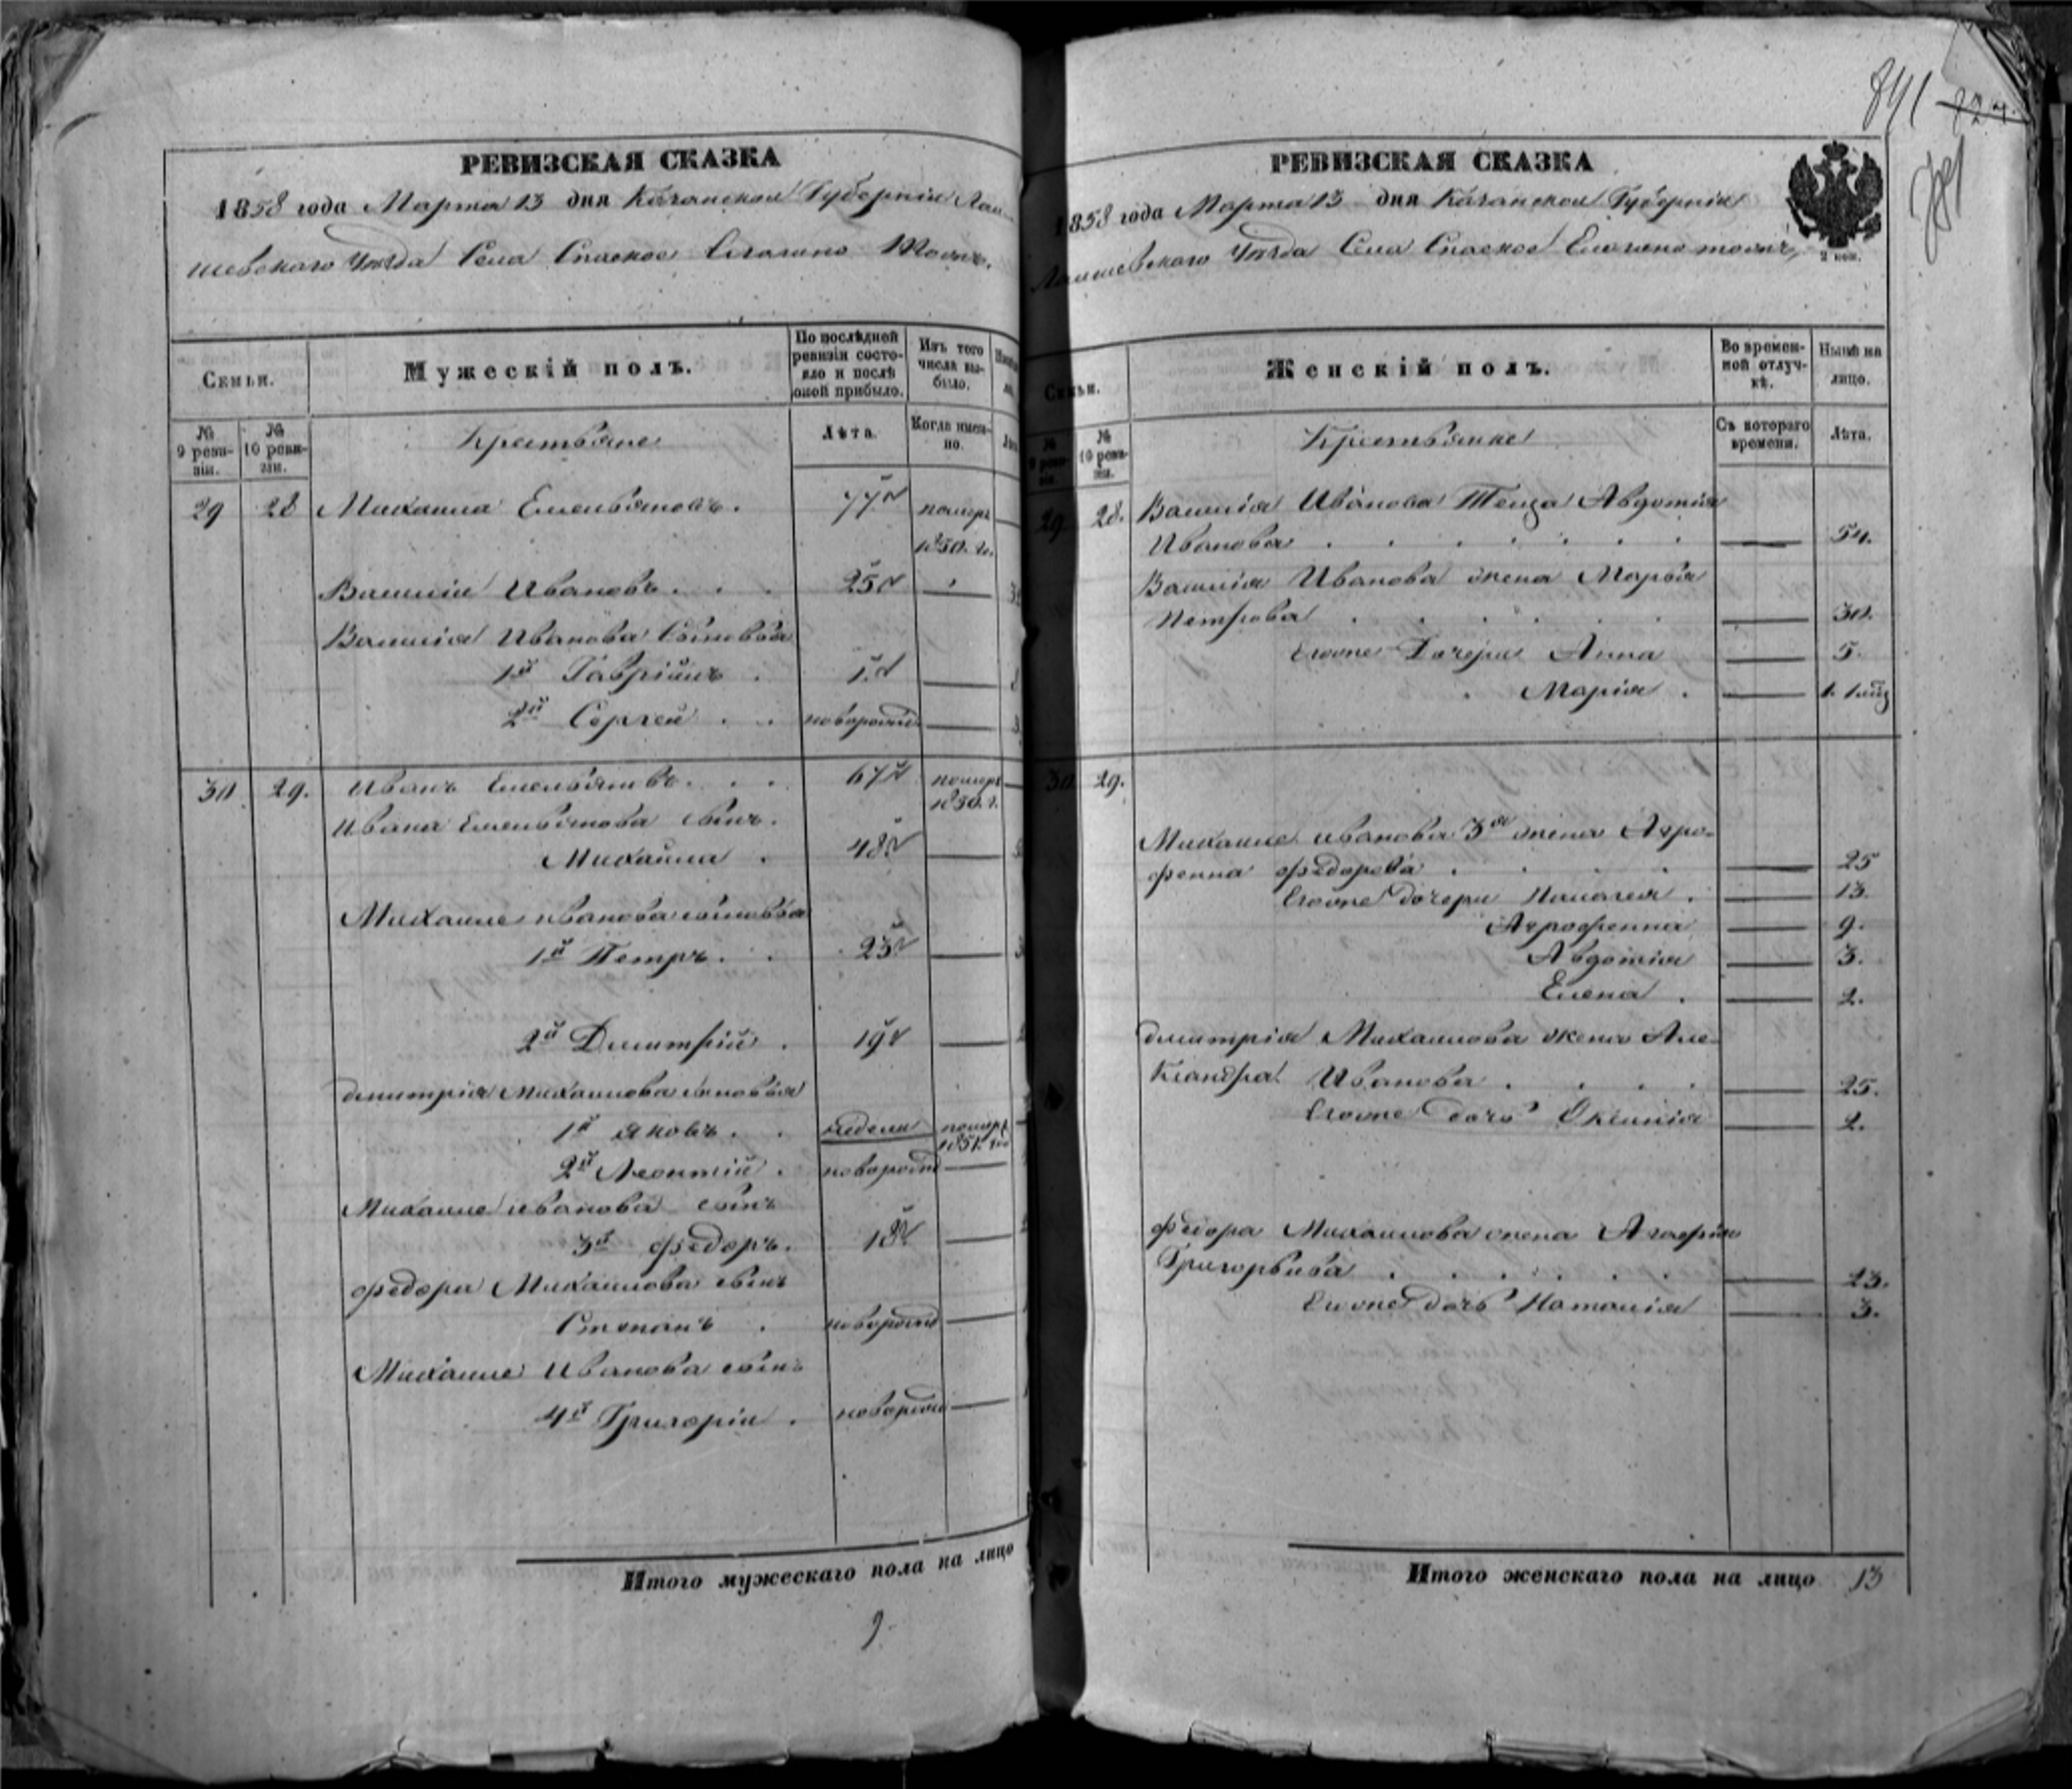 РЕВИЗСКАЯ СКАЗКА
1858 года Марта 13 дня Казанской Губерніи Лаи-
шевскаго Уѣзда Села Спаское
Семьи.
Мужескій полъ.
По послѣдней ревизіи состояло и послѣ оной прибыло.
Изъ того числа выбыло.
№ 9 ревизіи.
№ 10 ревизіи.
Крестьяне
Лѣта.
Когда именно.
29 28 Михаила Емельяновъ. 77 помер
1850. г.
Василій Ивановъ. 25
Василія Иванова сыновья
1й Гаврiилъ 1
2й Сергей новорожд
30 29. Иванъ Емельяновъ. 67 помер
1850. г.
Ивана Емельянова сынъ.
Михайла 48
Михайлы Иванова сыновья
1й Петръ. 23
2й Дмитрій 19
Дмитрія Михайлова сыновья
1й Яковъ. недели помер
1851. го
2й Леонтій новорожд
Михайлы Иванова сынъ
3й Федоръ. 18
Федора Михайлова сынъ
Степанъ новорожд
Михайлы Иванова сынъ
4й Григорій новорожд
Итого мужескаго пола на лицо
9
841 824.
РЕВИЗСКАЯ СКАЗКА
1858 года Марта 13 дня Казанской Губерніи
Лаишевскаго Уѣзда Села Спаское
2 коп.
Семьи.
Женскій полъ.
Во временной отлучкѣ.
Нынѣ на лицо.
№ 9 ревизіи.
№ 10 ревизіи.
Крестьянки
Съ котораго времени.
Лѣта.
29 28. Василія Иванова Теща Авдотия
Иванова 54.
Василія Иванова жена Марья
Петрова 30.
Евоные Дочери Анна 5.
Марія 1.
30 29.
Михайлы Иванова 3я жена Агро-
фенна Федорова 25
Евоные дочери Палагея 13.
Агрофенна 9.
Авдотия 3.
Елена 2.
Дмитрія Михайлова жена Але-
ксандра Иванова 25.
Евоные дочь Оксинія 2.
Федора Михайлова жена Агафия
Григорьева 23.
Евоные дочь Наталія 3.
Итого женскаго пола на лицо 13